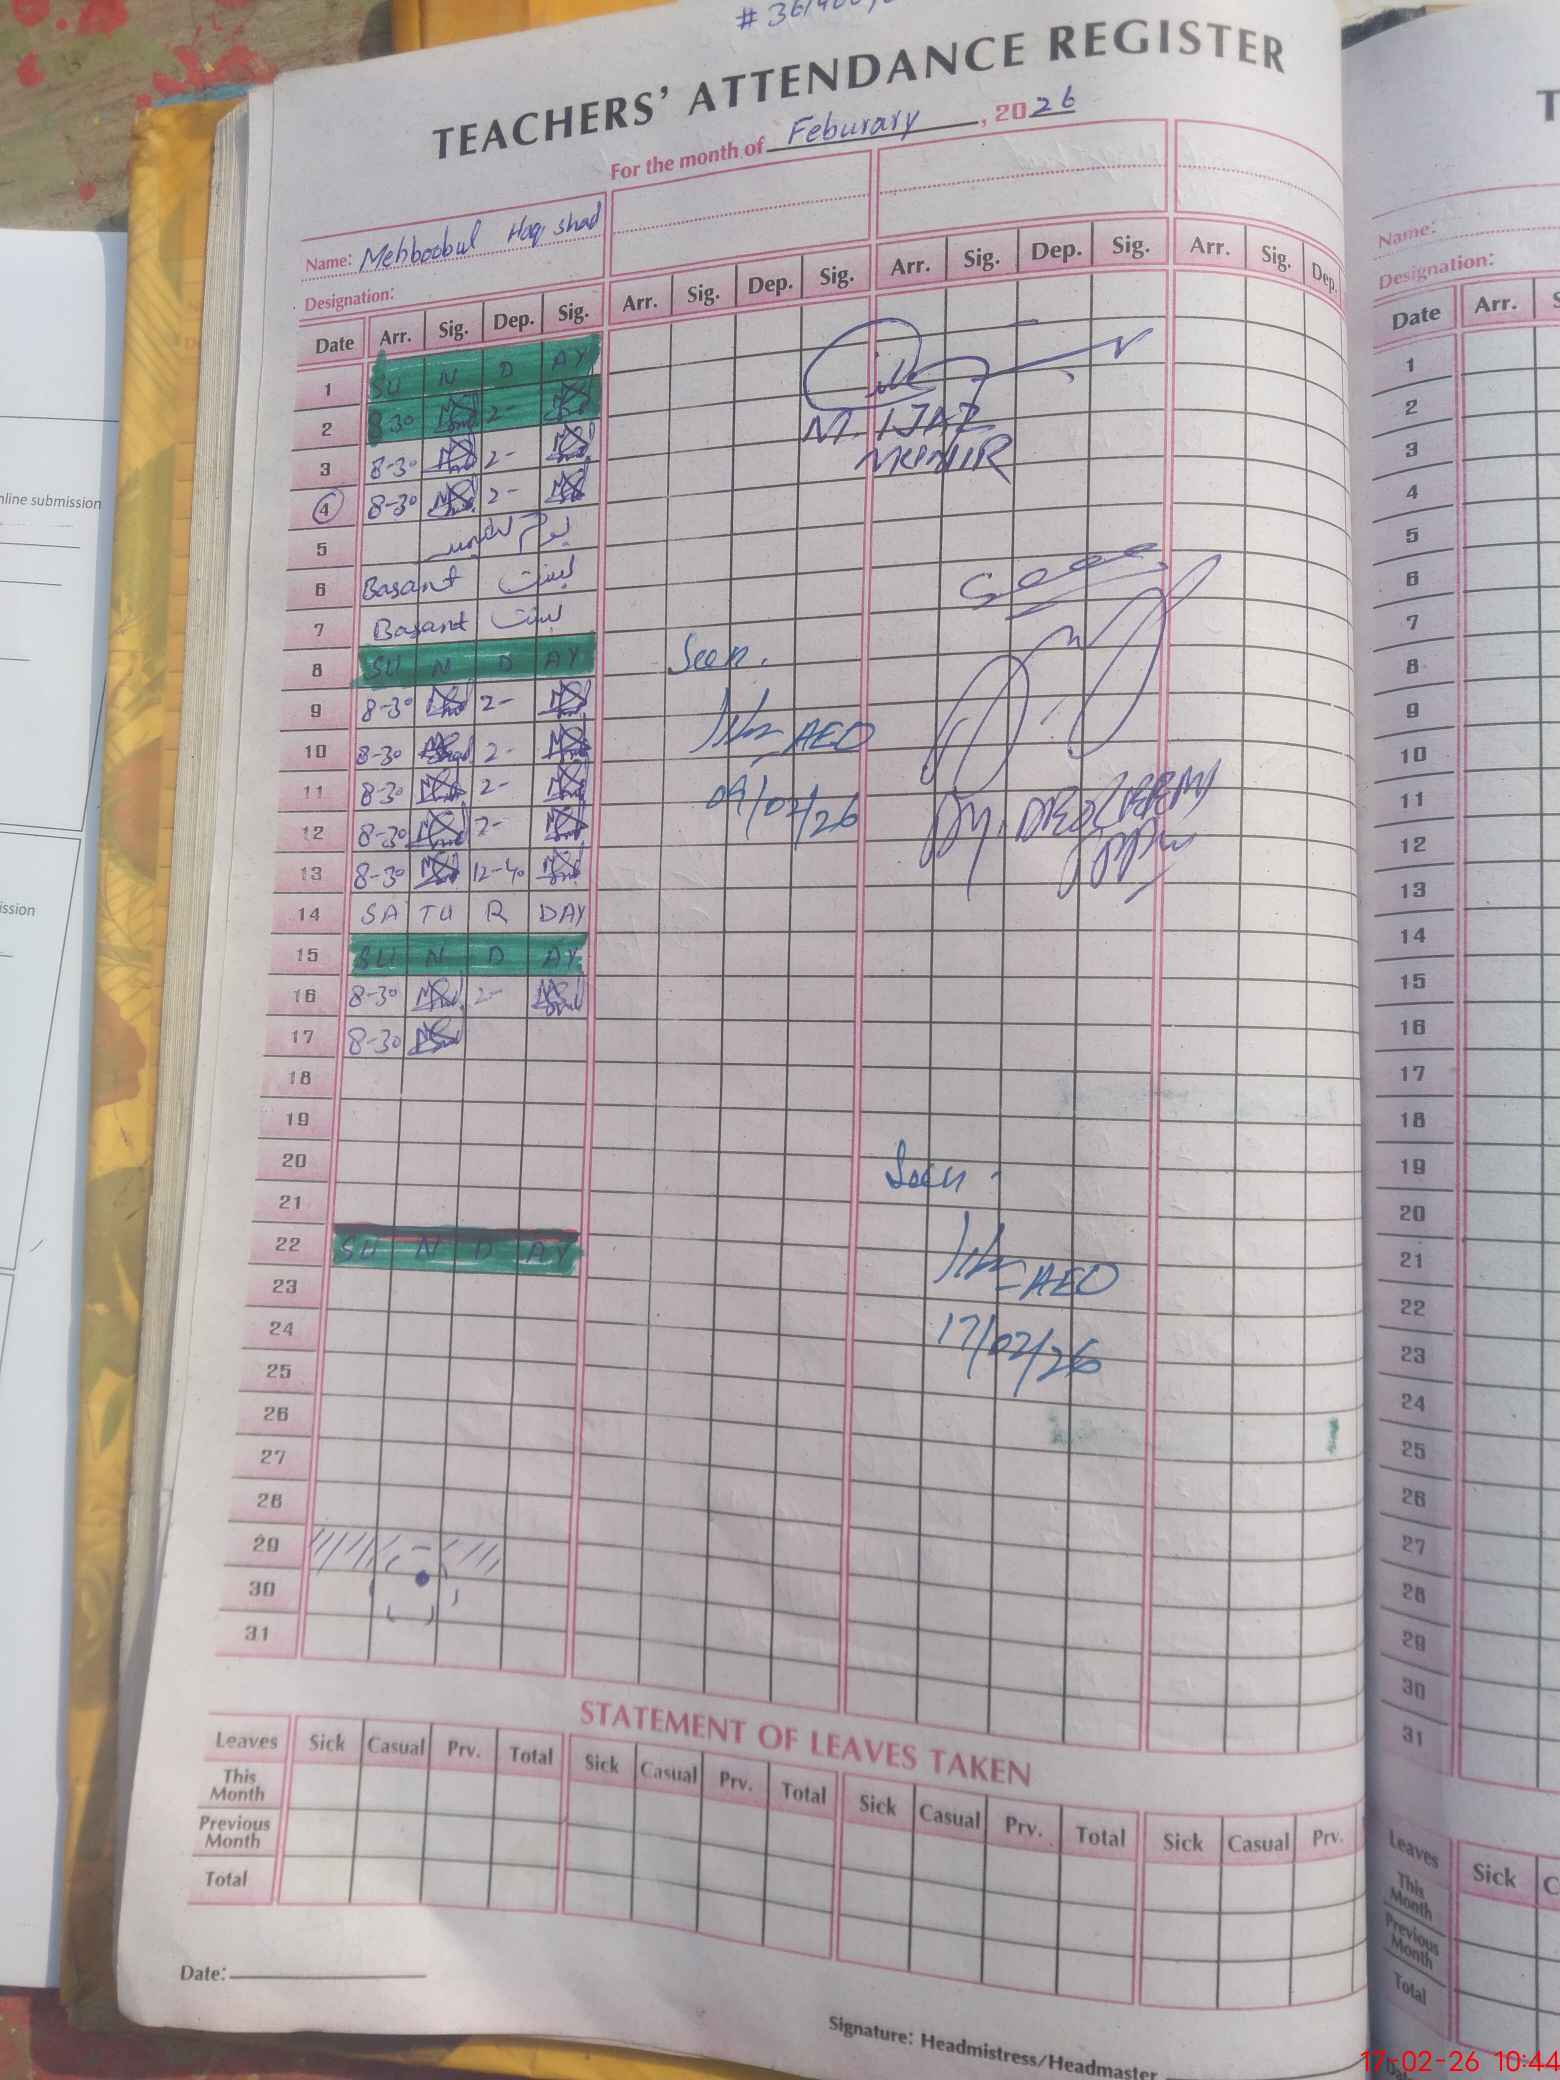 TEACHERS' ATTENDANCE REGISTER
For the month of Feburary, 2026
Name: Mehboobul Haq shad
Designation:
Date Arr. Sig. Dep. Sig. Arr. Sig. Dep. Sig. Arr. Sig. Dep. Sig. Arr. Sig. Dep.
1 SU N D AY
2 8-30 2-
3 8-30 2-
4 8-30 2-
5 یوم کشمیر
6 Basant بسنت
7 Basant بسنت
8 SU N D AY
9 8-30 2-
10 8-30 2-
11 8-30 2-
12 8-30 2-
13 8-30 12-40
14 SA TU R DAY
15 SU N D AY
16 8-30 2-
17 8-30
18
19
20
21
22 SU N D AY
23
24
25
26
27
28
29
30
31
M. IJAZ
MUNIR
Seen
Seen.
AEO
09/02/26
Dy. DEO
Seen.
AEO
17/02/26
STATEMENT OF LEAVES TAKEN
Leaves Sick Casual Prv. Total Sick Casual Prv. Total Sick Casual Prv. Total Sick Casual Prv.
This Month
Previous Month
Total
Date:
Signature: Headmistress/Headmaster
nline submission
ission
T
Name:
Designation:
Date Arr.
1
2
3
4
5
6
7
8
9
10
11
12
13
14
15
16
17
18
19
20
21
22
23
24
25
26
27
28
29
30
31
Leaves Sick
This Month
Previous Month
Total
17-02-26 10:44